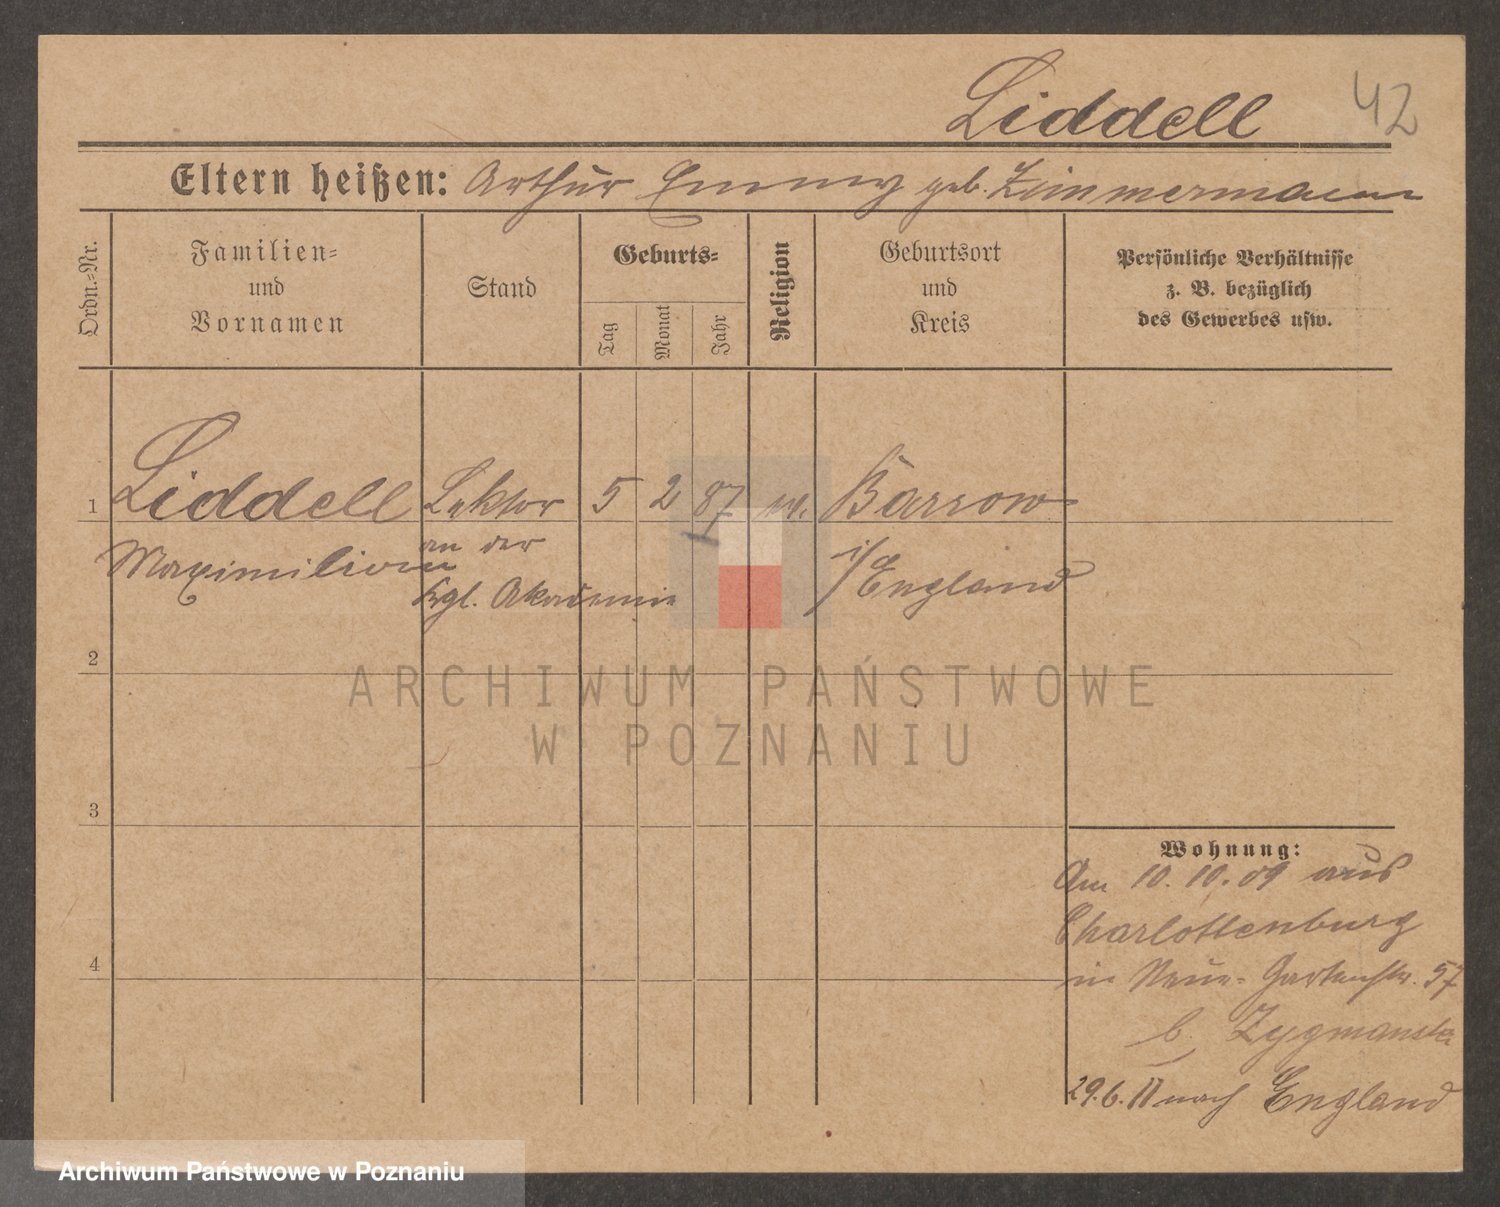 Liddell 42
Eltern heißen: Arthur Emmy geb. Zimmermann
Ordn.-Nr.
Familien-
und
Vornamen
Stand
Geburts-
Tag
Monat
Jahr
Religion
Geburtsort
und
Kreis
Persönliche Verhältnisse
z. B. bezüglich
des Gewerbes usw.
1 Liddell Lektor 5 2 87 ev. Barrow
Maximilian an der i/England
Kgl. Akademie
2
ARCHIWUM PAŃSTWOWE
W POZNANIU
3
Wohnung:
Am 10.10.09 aus
Charlottenburg
4
in Neue-Gartenstr. 57
b. Zygmanska
29.6.11 nach England
Archiwum Państwowe w Poznaniu